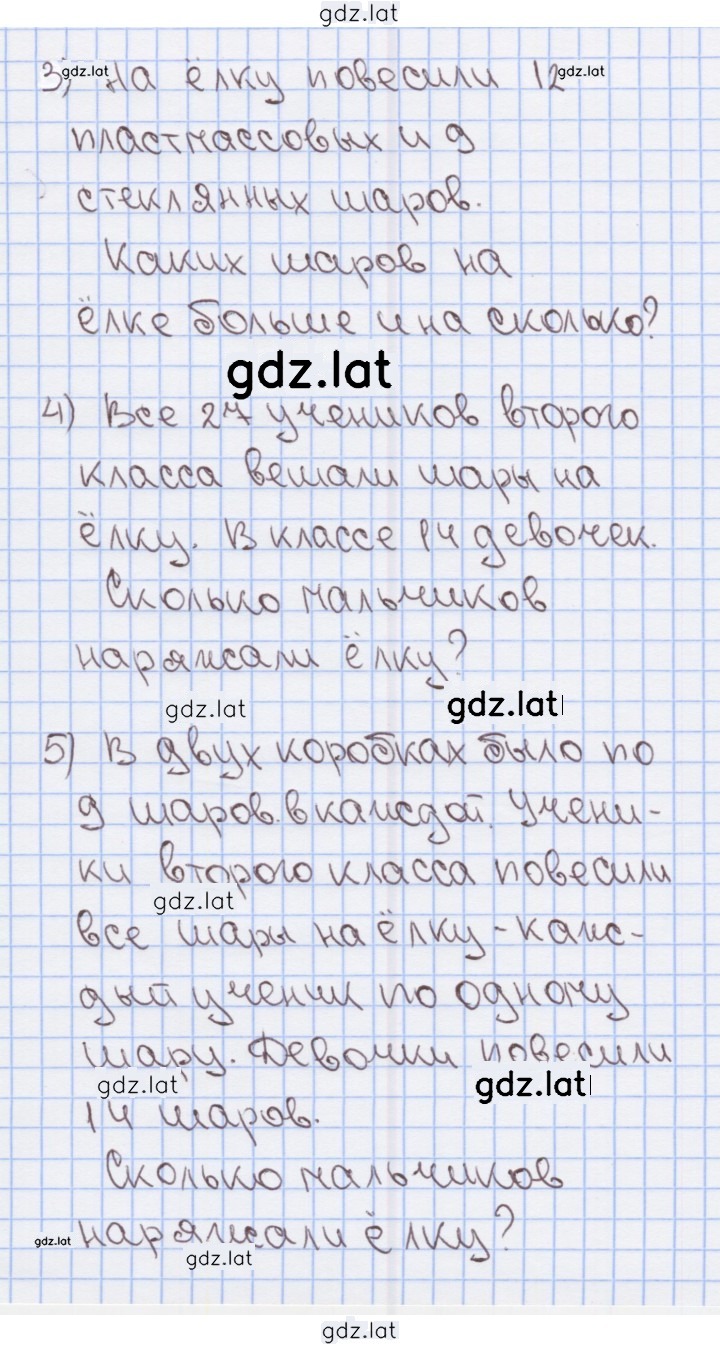 gdz.lat
3) На ёлку повесили 12
gdz.lat gdz.lat
пластмассовых и 9
стеклянных шаров.
Каких шаров на
ёлке больше и на сколько?
gdz.lat
4) Все 27 учеников второго
класса вешали шары на
ёлку. В классе 14 девочек.
Сколько мальчиков
наряжали ёлку?
gdz.lat gdz.lat
5) В двух коробках было по
9 шаров. в каждой. Учени-
ки второго класса повесили
gdz.lat
все шары на ёлку - каж-
дый ученик по одному
шару. Девочки повесили
gdz.lat gdz.lat
14 шаров.
Сколько мальчиков
gdz.lat наряжали ёлку?
gdz.lat
gdz.lat